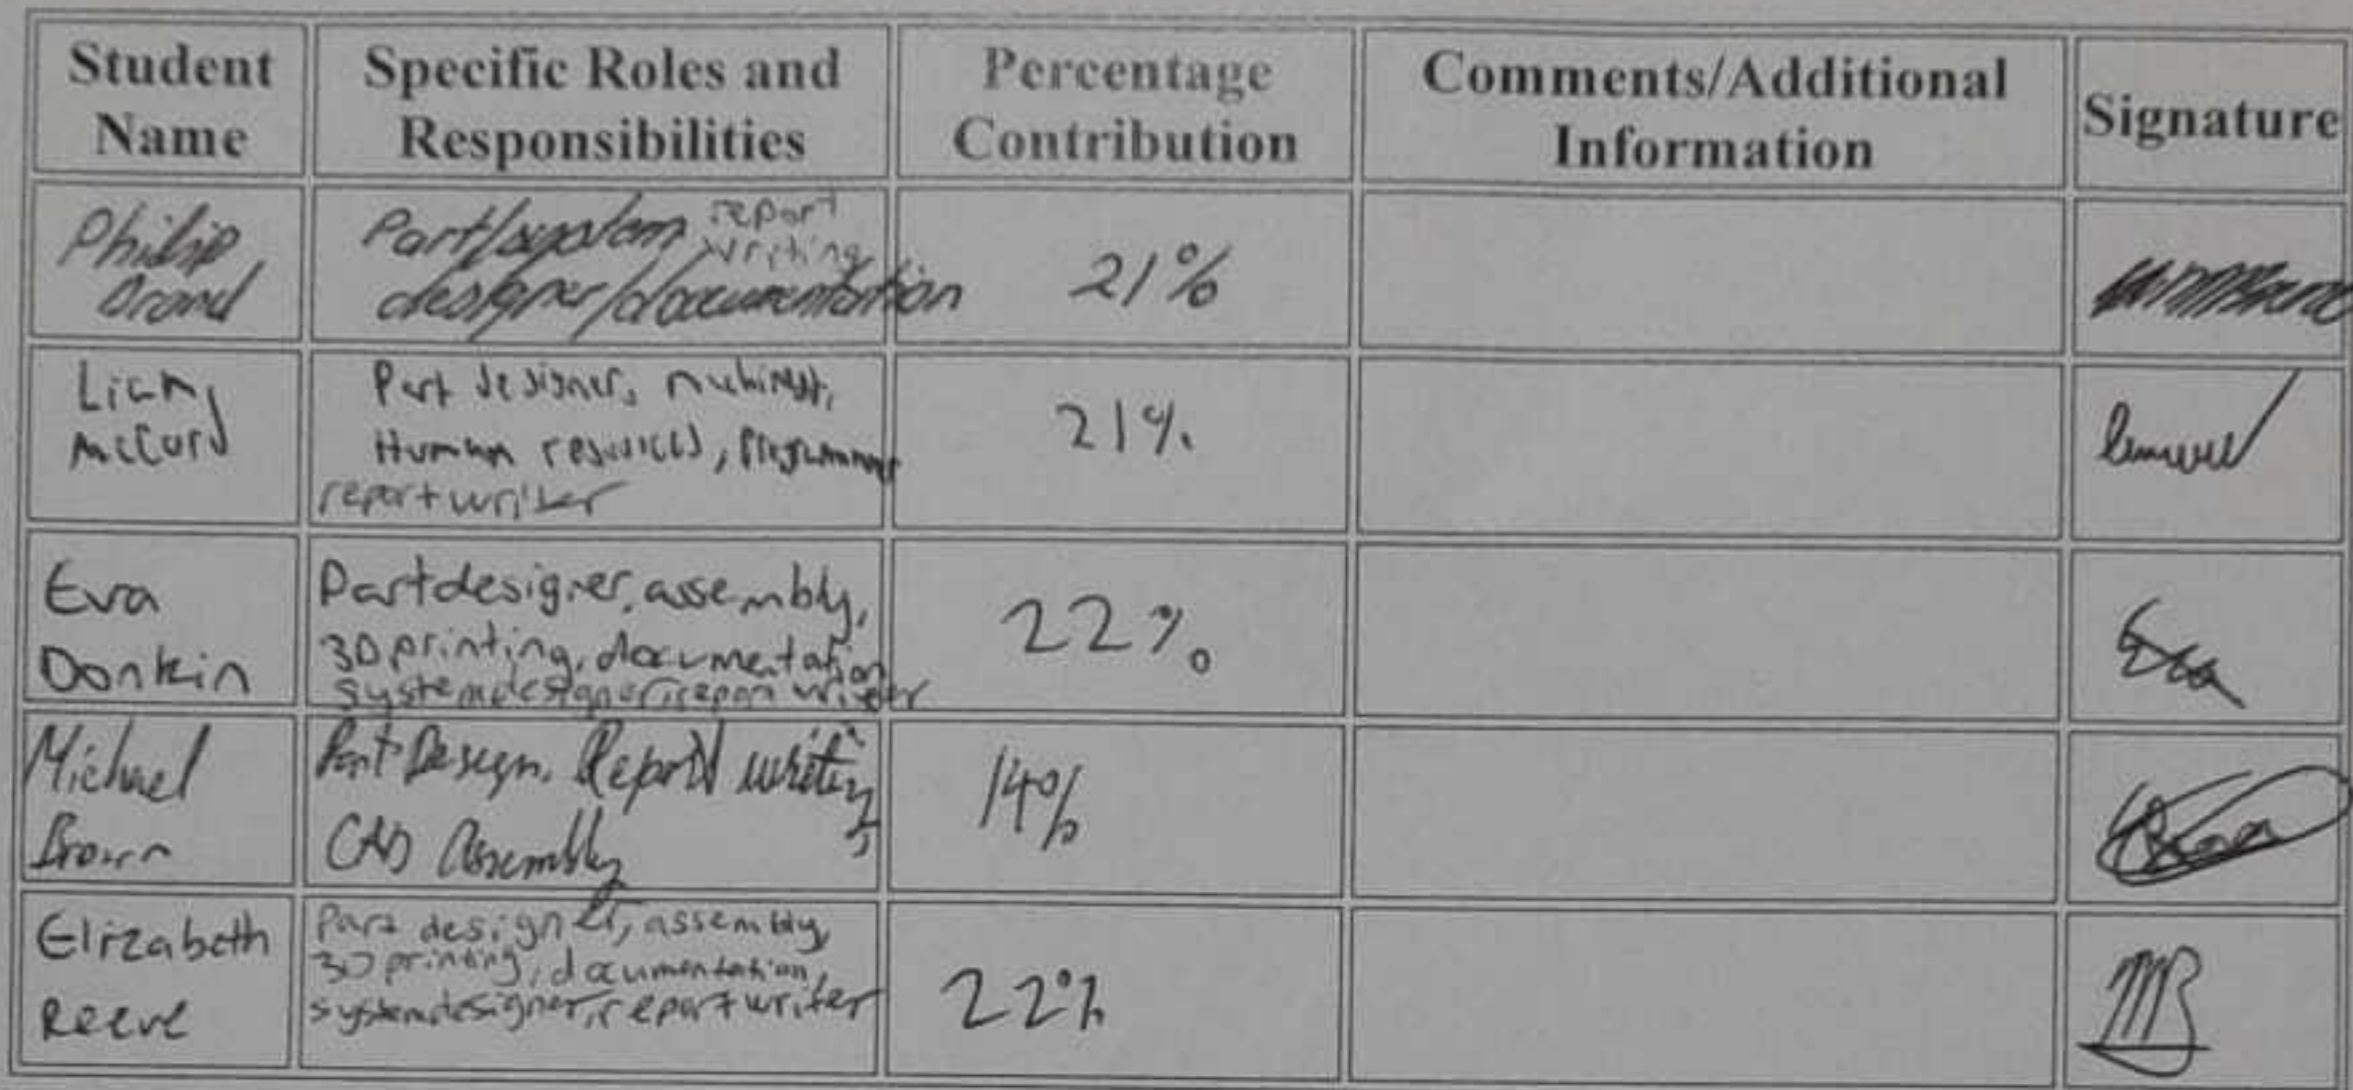 Student Name
Specific Roles and Responsibilities
Percentage Contribution
Comments/Additional Information
Signature
Philip
Brand
Part/system report
writing
designer/documentation
21%
Liam
McCurd
Part designer, machinist,
Human resources, Programmer
report writer
21%
Eva
Donkin
Part designer, assembly,
3D printing, documentation
system designer, report writer
22%
Eva
Michael
Brown
Part Design, Report writing,
CAD Assembly
14%
Elizabeth
Reeve
Part designer, assembly,
3D printing, documentation,
system designer, report writer
22%